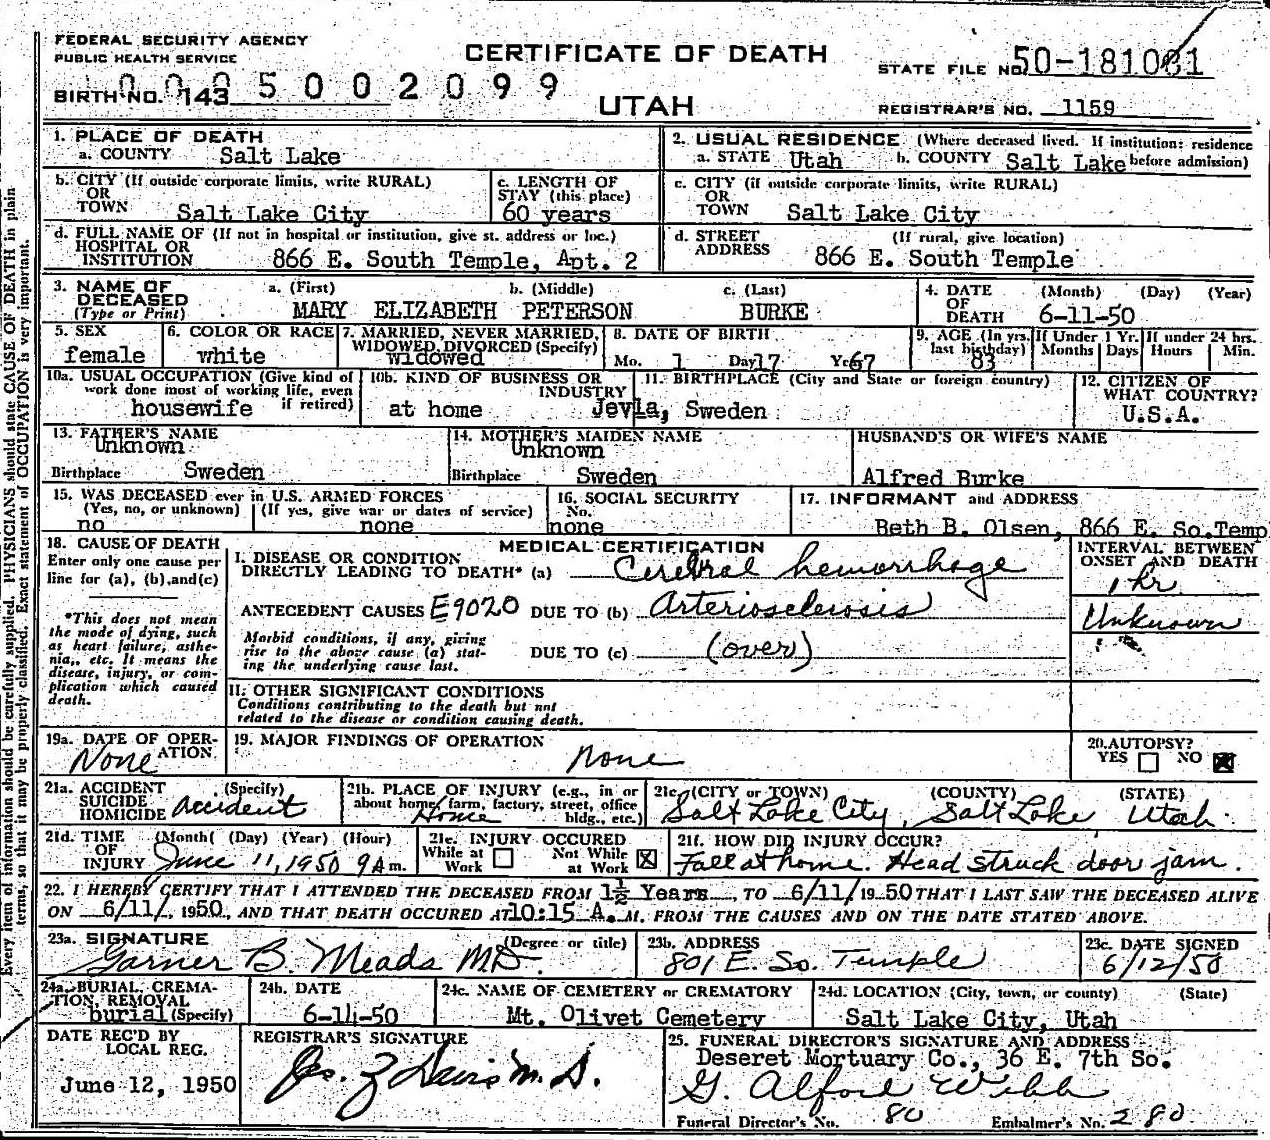 FEDERAL SECURITY AGENCY
PUBLIC HEALTH SERVICE
CERTIFICATE OF DEATH
STATE FILE NO. 50-181081
BIRTH NO. 143
0005002099
UTAH
REGISTRAR'S NO. 1159
1. PLACE OF DEATH
a. COUNTY Salt Lake
2. USUAL RESIDENCE (Where deceased lived. If institution: residence before admission)
a. STATE Utah b. COUNTY Salt Lake
b. CITY (If outside corporate limits, write RURAL)
OR
TOWN Salt Lake City
c. LENGTH OF
STAY (this place)
60 years
c. CITY (if outside corporate limits, write RURAL)
OR
TOWN Salt Lake City
d. FULL NAME OF (If not in hospital or institution, give st. address or loc.)
HOSPITAL OR
INSTITUTION 866 E. South Temple, Apt. 2
d. STREET (If rural, give location)
ADDRESS 866 E. South Temple
3. NAME OF
DECEASED
(Type or Print)
a. (First) b. (Middle) c. (Last)
MARY ELIZABETH PETERSON BURKE
4. DATE (Month) (Day) (Year)
OF
DEATH 6-11-50
5. SEX
female
6. COLOR OR RACE
white
7. MARRIED, NEVER MARRIED,
WIDOWED, DIVORCED (Specify)
widowed
8. DATE OF BIRTH
Mo. 1 Day 17 Yr. 67
9. AGE (In yrs.
last birthday)
83
If Under 1 Yr.
Months Days
If under 24 hrs.
Hours Min.
10a. USUAL OCCUPATION (Give kind of
work done most of working life, even
if retired)
housewife
10b. KIND OF BUSINESS OR
INDUSTRY
at home
11. BIRTHPLACE (City and State or foreign country)
Jevla, Sweden
12. CITIZEN OF
WHAT COUNTRY?
U.S.A.
13. FATHER'S NAME
Unknown
Birthplace Sweden
14. MOTHER'S MAIDEN NAME
Unknown
Birthplace Sweden
HUSBAND'S OR WIFE'S NAME
Alfred Burke
15. WAS DECEASED ever in U.S. ARMED FORCES
(Yes, no, or unknown) (If yes, give war or dates of service)
no none
16. SOCIAL SECURITY
No.
none
17. INFORMANT and ADDRESS
Beth B. Olsen, 866 E. So.Temp
18. CAUSE OF DEATH
Enter only one cause per
line for (a), (b),and(c)
*This does not mean
the mode of dying, such
as heart failure, asthe-
nia,, etc. It means the
disease, injury, or com-
plication which caused
death.
MEDICAL CERTIFICATION
I. DISEASE OR CONDITION
DIRECTLY LEADING TO DEATH* (a) Cerebral hemorrhage
ANTECEDENT CAUSES E9020 DUE TO (b) Arteriosclerosis
Morbid conditions, if any, giving
rise to the above cause (a) stat-
ing the underlying cause last.
DUE TO (c) (over)
INTERVAL BETWEEN
ONSET AND DEATH
1 hr
Unknown
II. OTHER SIGNIFICANT CONDITIONS
Conditions contributing to the death but not
related to the disease or condition causing death.
19a. DATE OF OPER-
ATION
None
19. MAJOR FINDINGS OF OPERATION
None
20.AUTOPSY?
YES NO
21a. ACCIDENT (Specify)
SUICIDE
HOMICIDE Accident
21b. PLACE OF INJURY (e.g., in or
about home, farm, factory, street, office
bldg., etc.)
Home
21c. (CITY or TOWN) (COUNTY) (STATE)
Salt Lake City, Salt Lake Utah
21d. TIME (Month) (Day) (Year) (Hour)
OF
INJURY June 11, 1950 9 A m.
21e. INJURY OCCURED
While at Work Not While at Work
21f. HOW DID INJURY OCCUR?
Fall at home. Head struck door jam.
22. I HEREBY CERTIFY THAT I ATTENDED THE DECEASED FROM 1½ Years, TO 6/11/1950 THAT I LAST SAW THE DECEASED ALIVE
ON 6/11/, 1950, AND THAT DEATH OCCURED AT 10:15 A. M. FROM THE CAUSES AND ON THE DATE STATED ABOVE.
23a. SIGNATURE (Degree or title)
Garner B. Meads M.D.
23b. ADDRESS
801 E. So. Temple
23c. DATE SIGNED
6/12/50
24a. BURIAL, CREMA-
TION, REMOVAL
burial (Specify)
24b. DATE
6-14-50
24c. NAME OF CEMETERY or CREMATORY
Mt. Olivet Cemetery
24d. LOCATION (City, town, or county) (State)
Salt Lake City, Utah
DATE REC'D BY
LOCAL REG.
June 12, 1950
REGISTRAR'S SIGNATURE
Jos. Z Davis M.D.
25. FUNERAL DIRECTOR'S SIGNATURE AND ADDRESS
Deseret Mortuary Co., 36 E. 7th So.
G. Alford Webb
Funeral Director's No. 80 Embalmer's No. 280
Every item of information should be carefully supplied. PHYSICIANS should state CAUSE OF DEATH in plain
terms, so that it may be properly classified. Exact statement of OCCUPATION is very important.